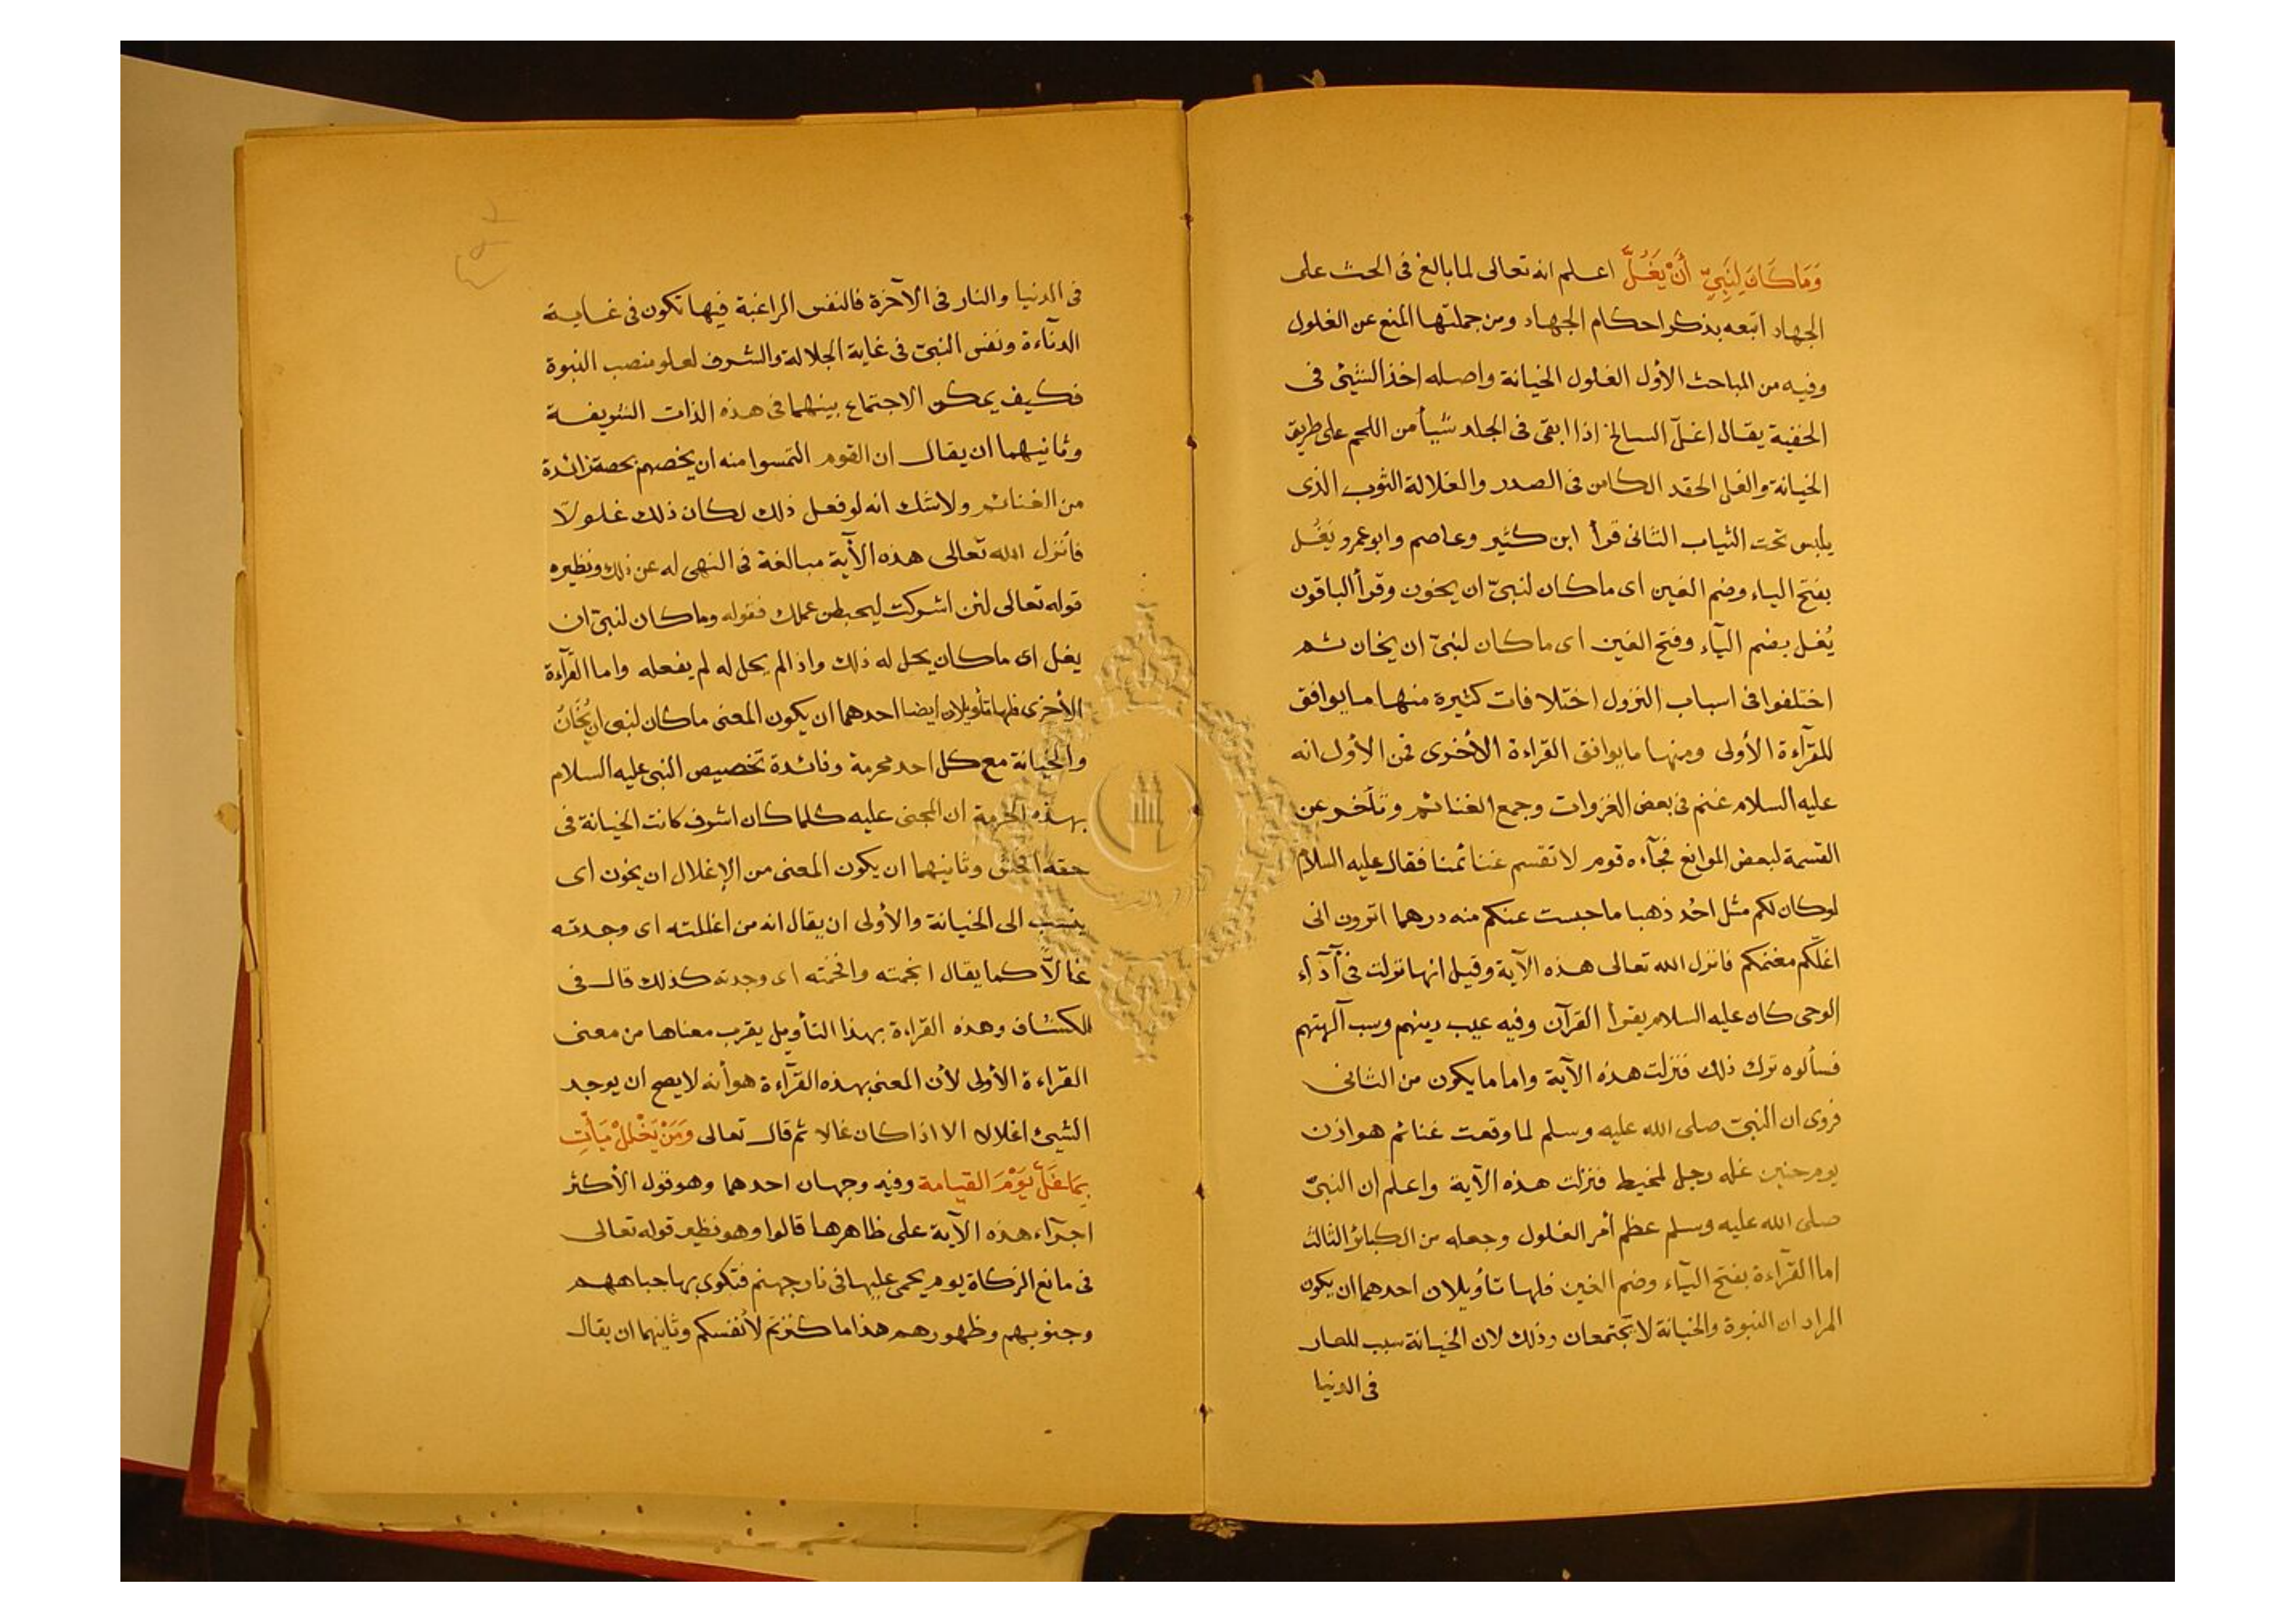 وَمَا كَانَ لِنَبِيٍّ أَنْ يَغُلَّ اعلم انه تعالى لما بالغ فى الحث على
الجهاد اتبعه بذكر احكام الجهاد ومن جملتها المنع عن الغلول
وفيه من المباحث الأول الغلول الخيانة واصله اخذ الشيئ فى
الخفية يقال اغلّ السالخ اذا ابقى فى الجلد شيأ من اللحم على طريق
الخيانة والغل الحقد الكامن فى الصدر والغلالة الثوب الذى
يلبس تحت الثياب الثانى قرأ ابن كثير وعاصم وابو عمرو يَغُل
بفتح الياء وضم الغين اى ما كان لنبىّ ان يخون وقرأ الباقون
يُغل بضم اليآء وفتح الغين اى ما كان لنبىّ ان يخان ثم
اختلفوا فى اسباب النزول اختلافات كثيرة منها ما يوافق
للقرآءة الأولى ومنها ما يوافق القراءة الأخرى فمن الأول انه
عليه السلام غنم فى بعض الغزوات وجمع الغنائم وتأخر عن
القسمة لبعض الموانع فجآءه قوم لا تقسم غنائمنا فقال عليه السلام
لو كان لكم مثل احُد ذهبا ما حبست عنكم منه درهما اترون انى
اغلّكم مغنمكم فانزل الله تعالى هذه الآية وقيل انها نزلت فى آدآء
الوحى كان عليه السلام يقرأ القرآن وفيه عيب دينهم وسب آلهتهم
فسألوه ترك ذلك فنزلت هذه الآية واما ما يكون من الثانى
فروى ان النبىّ صلى الله عليه وسلم لما وقعت غنائم هوازن
يوم حنين غله رجل لمخيط فنزلت هذه الآية واعلم ان النبىّ
صلى الله عليه وسلم عظم أمر الغلول وجعله من الكبائر الثالث
اما القرآءة بفتح اليآء وضم الغين فلها تأويلان احدهما ان يكون
المراد ان النبوة والخيانة لا تجتمعان وذلك لان الخيانة سبب للعار
فى الدنيا
فى الدنيا والنار فى الآخرة فالنفس الراغبة فيها تكون فى غاية
الدنآءة ونفس النبىّ فى غاية الجلالة والشرف لعلو منصب النبوة
فكيف يمكن الاجتماع بينهما فى هذه الذات الشريفة
وثانيهما ان يقال ان القوم التمسوا منه ان يخصهم بحصة زائدة
من الغنائم ولا شك انه لو فعل ذلك لكان ذلك غلولا
فأنزل الله تعالى هذه الآية مبالغة فى النهى له عن ذلك ونظيره
قوله تعالى لئن اشركت ليحبطن عملك فقوله وما كان لنبىّ ان
يغل اى ما كان يحل له ذلك واذا لم يحل له لم يفعله واما القرآءة
الأخرى فلها تأويلان ايضا احدهما ان يكون المعنى ما كان لنبى ان يُخَانُ
والخيانة مع كل احد محرمة وفائدة تخصيص النبى عليه السلام
بهذه الحرمة ان المجنى عليه كلما كان اشرف كانت الخيانة فى
حقه افحش وثانيهما ان يكون المعنى من الإغلال ان يخون اى
ينسب الى الخيانة والأولى ان يقال انه من اغللته اى وجدته
غالاّ كما يقال ابخمته وافحمته اى وجدته كذلك قال فى
الكشاف وهذه القراءة بهذا التأويل يقرب معناها من معنى
القراءة الأولى لأن المعنى بهذه القرآءة هو أنه لا يصح ان يوجد
الشيئ اغلالا الا اذا كان غالا ثم قال تعالى وَمَنْ يَغْلُلْ يَأْتِ
بِمَا غَلَّ يَوْمَ القيامة وفيه وجهان احدهما وهو قول الأكثر
اجرآء هذه الآية على ظاهرها قالوا وهو نظير قوله تعالى
فى مانع الزكاة يوم يحمى عليها فى نار جهنم فتكوى بها جباههم
وجنوبهم وظهورهم هذا ما كنزتم لأنفسكم وثانيهما ان يقال